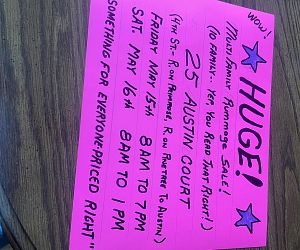 WOW!
HUGE!
MULTI-FAMILY RUMMAGE SALE!
(10 FAMILY. YEP, YOU READ THAT RIGHT!)
25 AUSTIN COURT
(4TH ST. - R ON PRIMROSE, R ON PINETREE TO AUSTIN)
FRIDAY MAY 15TH 8 AM TO 7 PM
SAT. MAY 16TH 8 AM TO 1 PM
SOMETHING FOR EVERYONE-PRICED RIGHT"